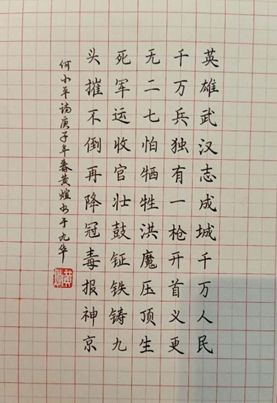 英雄武汉志成城千万人民
千万兵独有一枪开首义更
无二七怕牺牲洪魔压顶生
死军运收官壮鼓钲铁铸九
头摧不倒再降冠毒报神京
何小平诗庚子年春黄煌书于九华